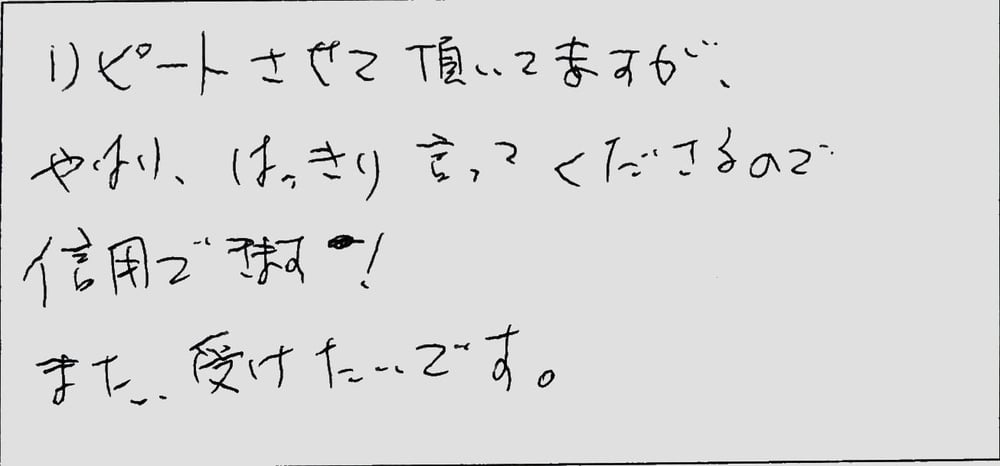 リピートさせて頂いてますが、
やはり、はっきり言ってくださるので
信用できます!
また、受けたいです。